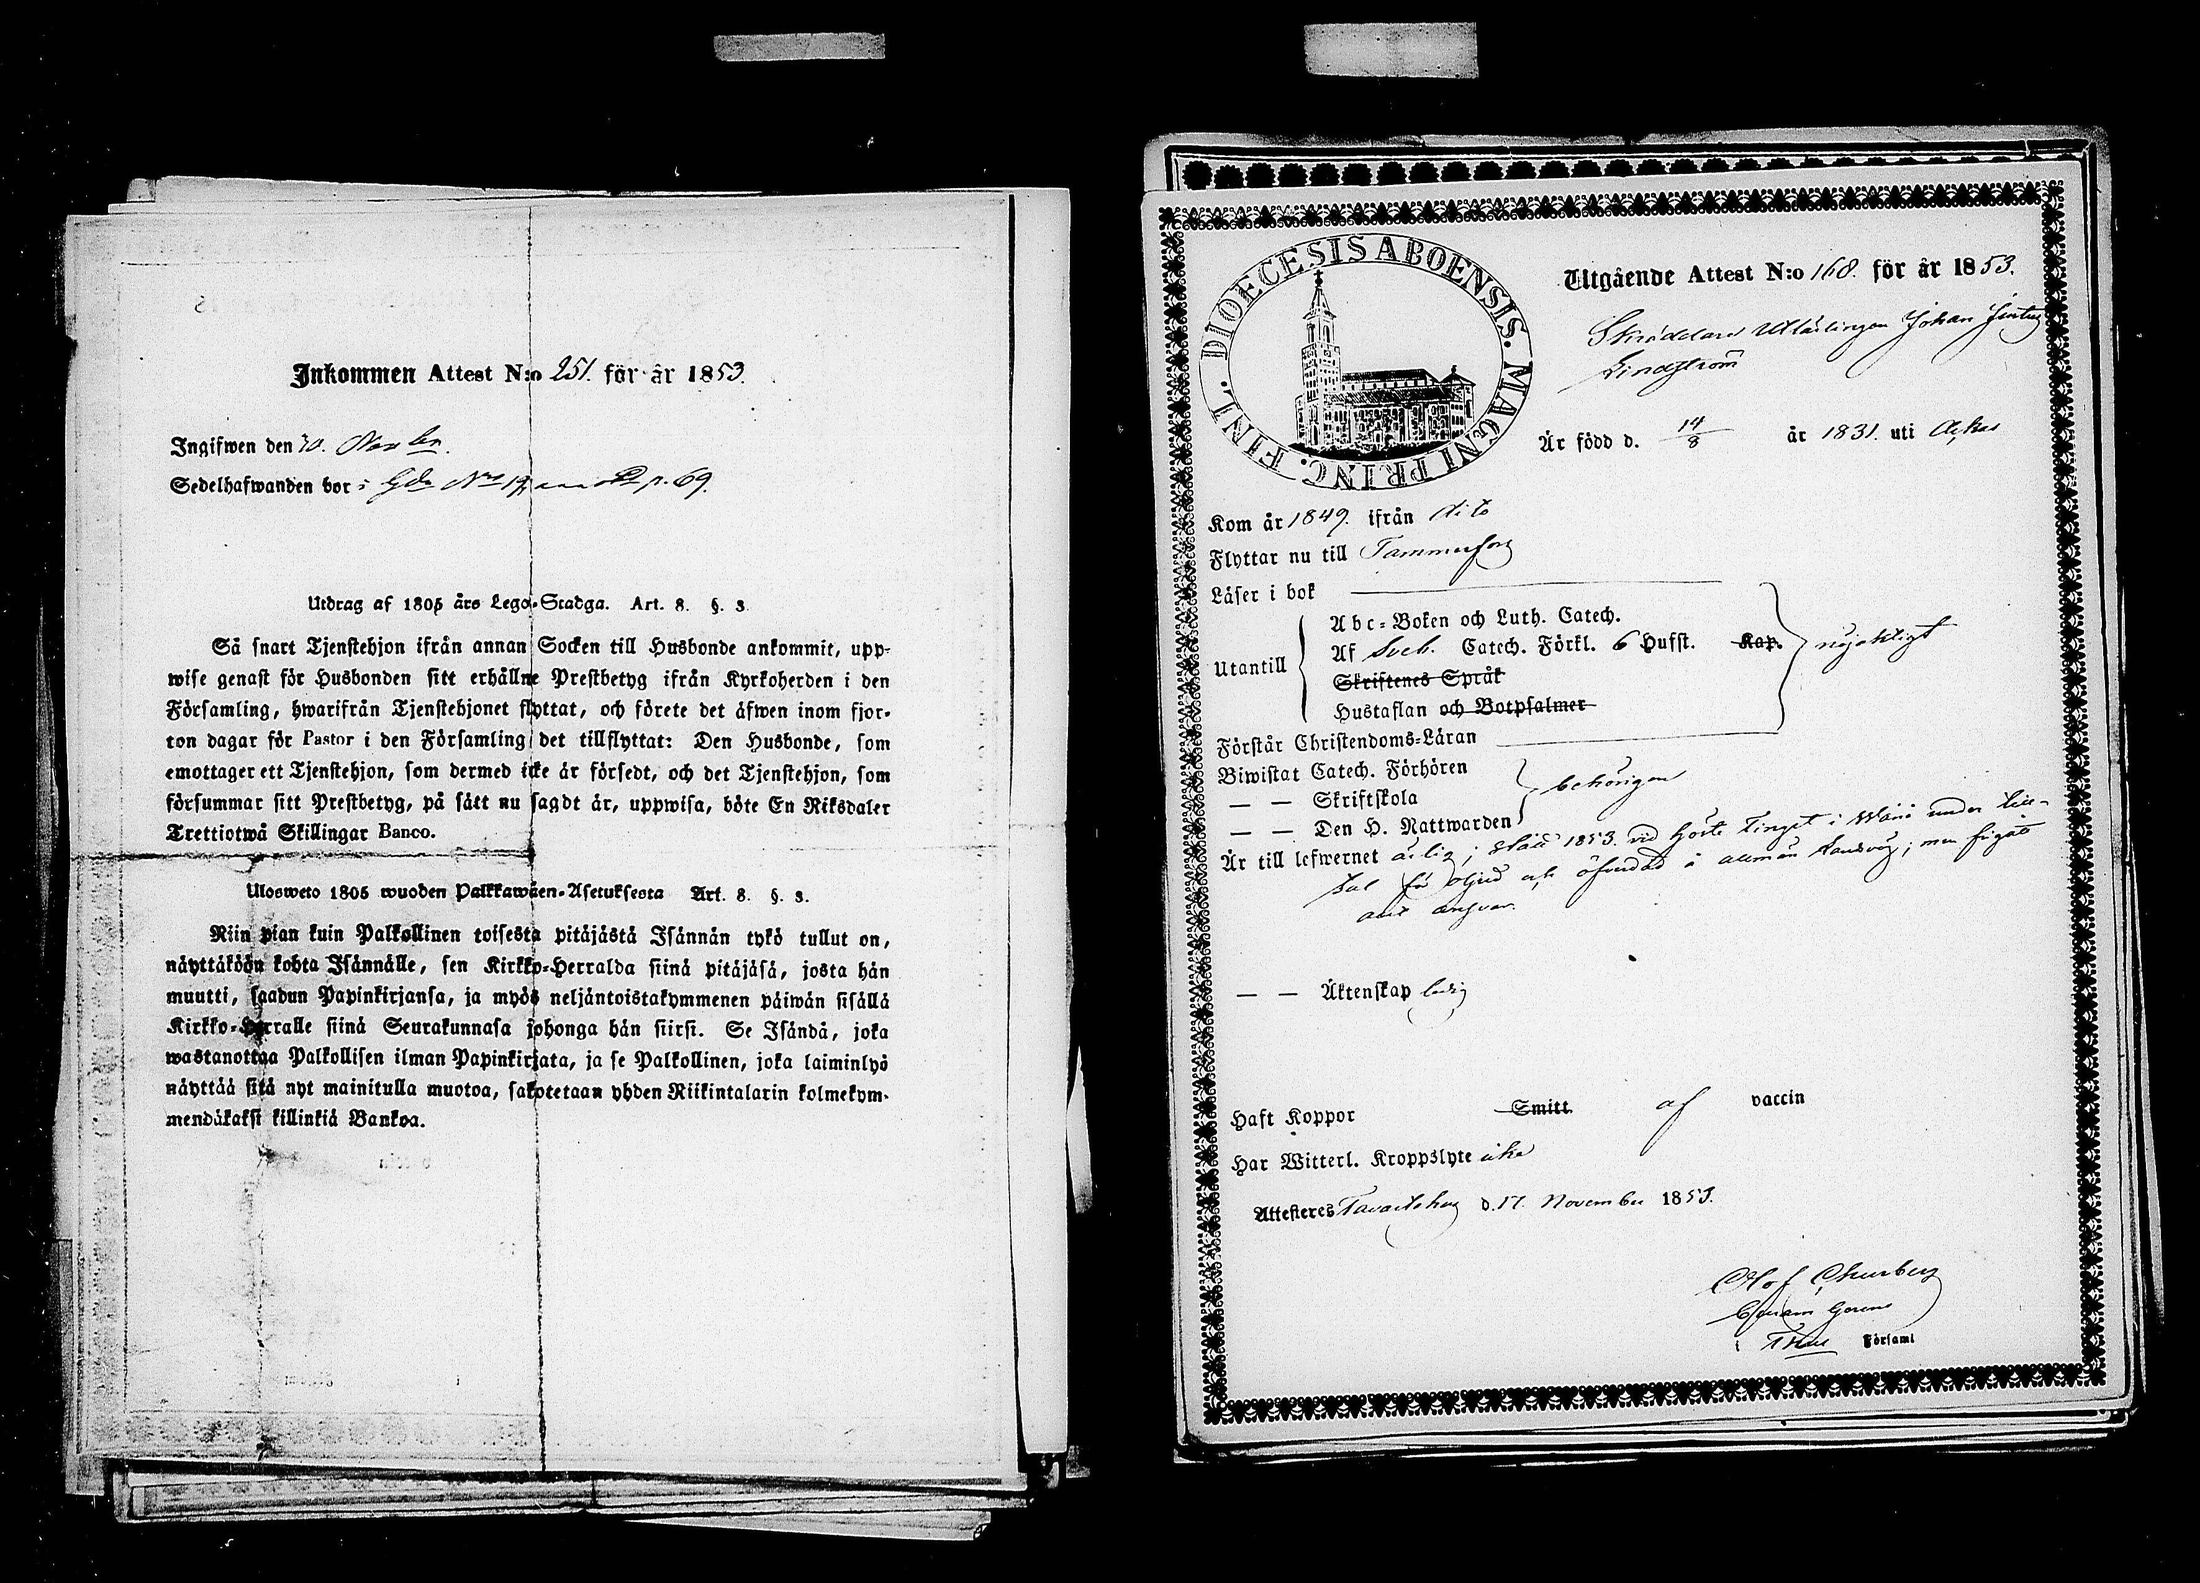 Inkommen Attest N:o 251. för år 1853.
Ingifwen den 30. Novbr.
Sedelhafwanden bor i Gdn No 17 p. 69.
Utdrag af 1805 års Lego-Stadga. Art. 8. §. 3.
Så snart Tjenstehjon ifrån annan Socken till Husbonde ankommit, upp-
wise genast för Husbonden sitt erhållne Prestbetyg ifrån Kyrkoherden i den
Församling, hwarifrån Tjenstehjonet flyttat, och förete det äfwen inom fjor-
ton dagar för Pastor i den Församling det tillflyttat: Den Husbonde, som
emottager ett Tjenstehjon, som dermed icke är försedt, och det Tjenstehjon, som
försummar sitt Prestbetyg, på sätt nu sagdt är, uppwisa, böte En Riksdaler
Trettiotwå Skillingar Banco.
Ulosweto 1805 wuoden Palkkawäen-Asetuksesta Art. 8. §. 3.
Niin pian kuin Palkollinen toisesta pitäjästä Isännän tykö tullut on,
näyttäköön kohta Isännälle, sen Kirkko-Herralda siinä pitäjäsä, josta hän
muutti, saadun Papinkirjansa, ja myös neljäntoistakymmenen päiwän sisällä
Kirkko-Herralle siinä Seurakunnasa johonga hän siirsi. Se Isändä, joka
wastanottaa Palkollisen ilman Papinkirjata, ja se Palkollinen, joka laiminlyö
näyttää sitä nyt mainitulla muotoa, sakotetaan yhden Riikintalarin kolmekym-
mendäkaksi killinkiä Bankoa.
DIOECESIS ABOENSIS. MAGNI PRINC. FINL.
Utgående Attest N:o 168. för år 1853.
Skräddare Utlärlingen Johan
Lindström
Är född d. 14/8 år 1831. uti
Kom år 1849. ifrån dito
Flyttar nu till Tammerfors
Läser i bok
Abc-Boken och Luth. Catech.
Utantill Af Sveb. Catech. Förkl. 6 Hufst. Kap. nöjaktigt
Skriftenes Språk
Hustaflan och Botpsalmer
Förstår Christendoms-Läran
Biwistat Catech. Förhören
— — Skriftskola behörigen
— — Den H. Nattwarden
Är till lefwernet ärlig; 1853. vid höste Tinget i under till-
tal för och å allmän landsväg; men frigåts
— — Äktenskap ledig
Haft Koppor Smitt. af vaccin
Har Witterl. Kroppslyte icke
Attesteres Tavastehus d. 17. November 1853.
Olof
Församl